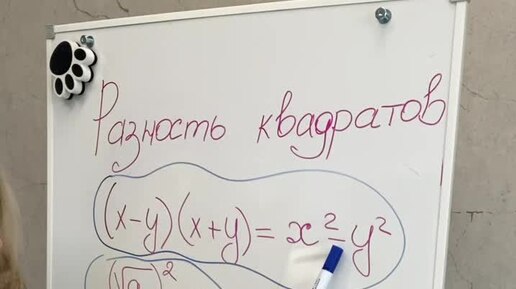 Разность квадратов
(x-y)(x+y)=x²-y²
(√a)²